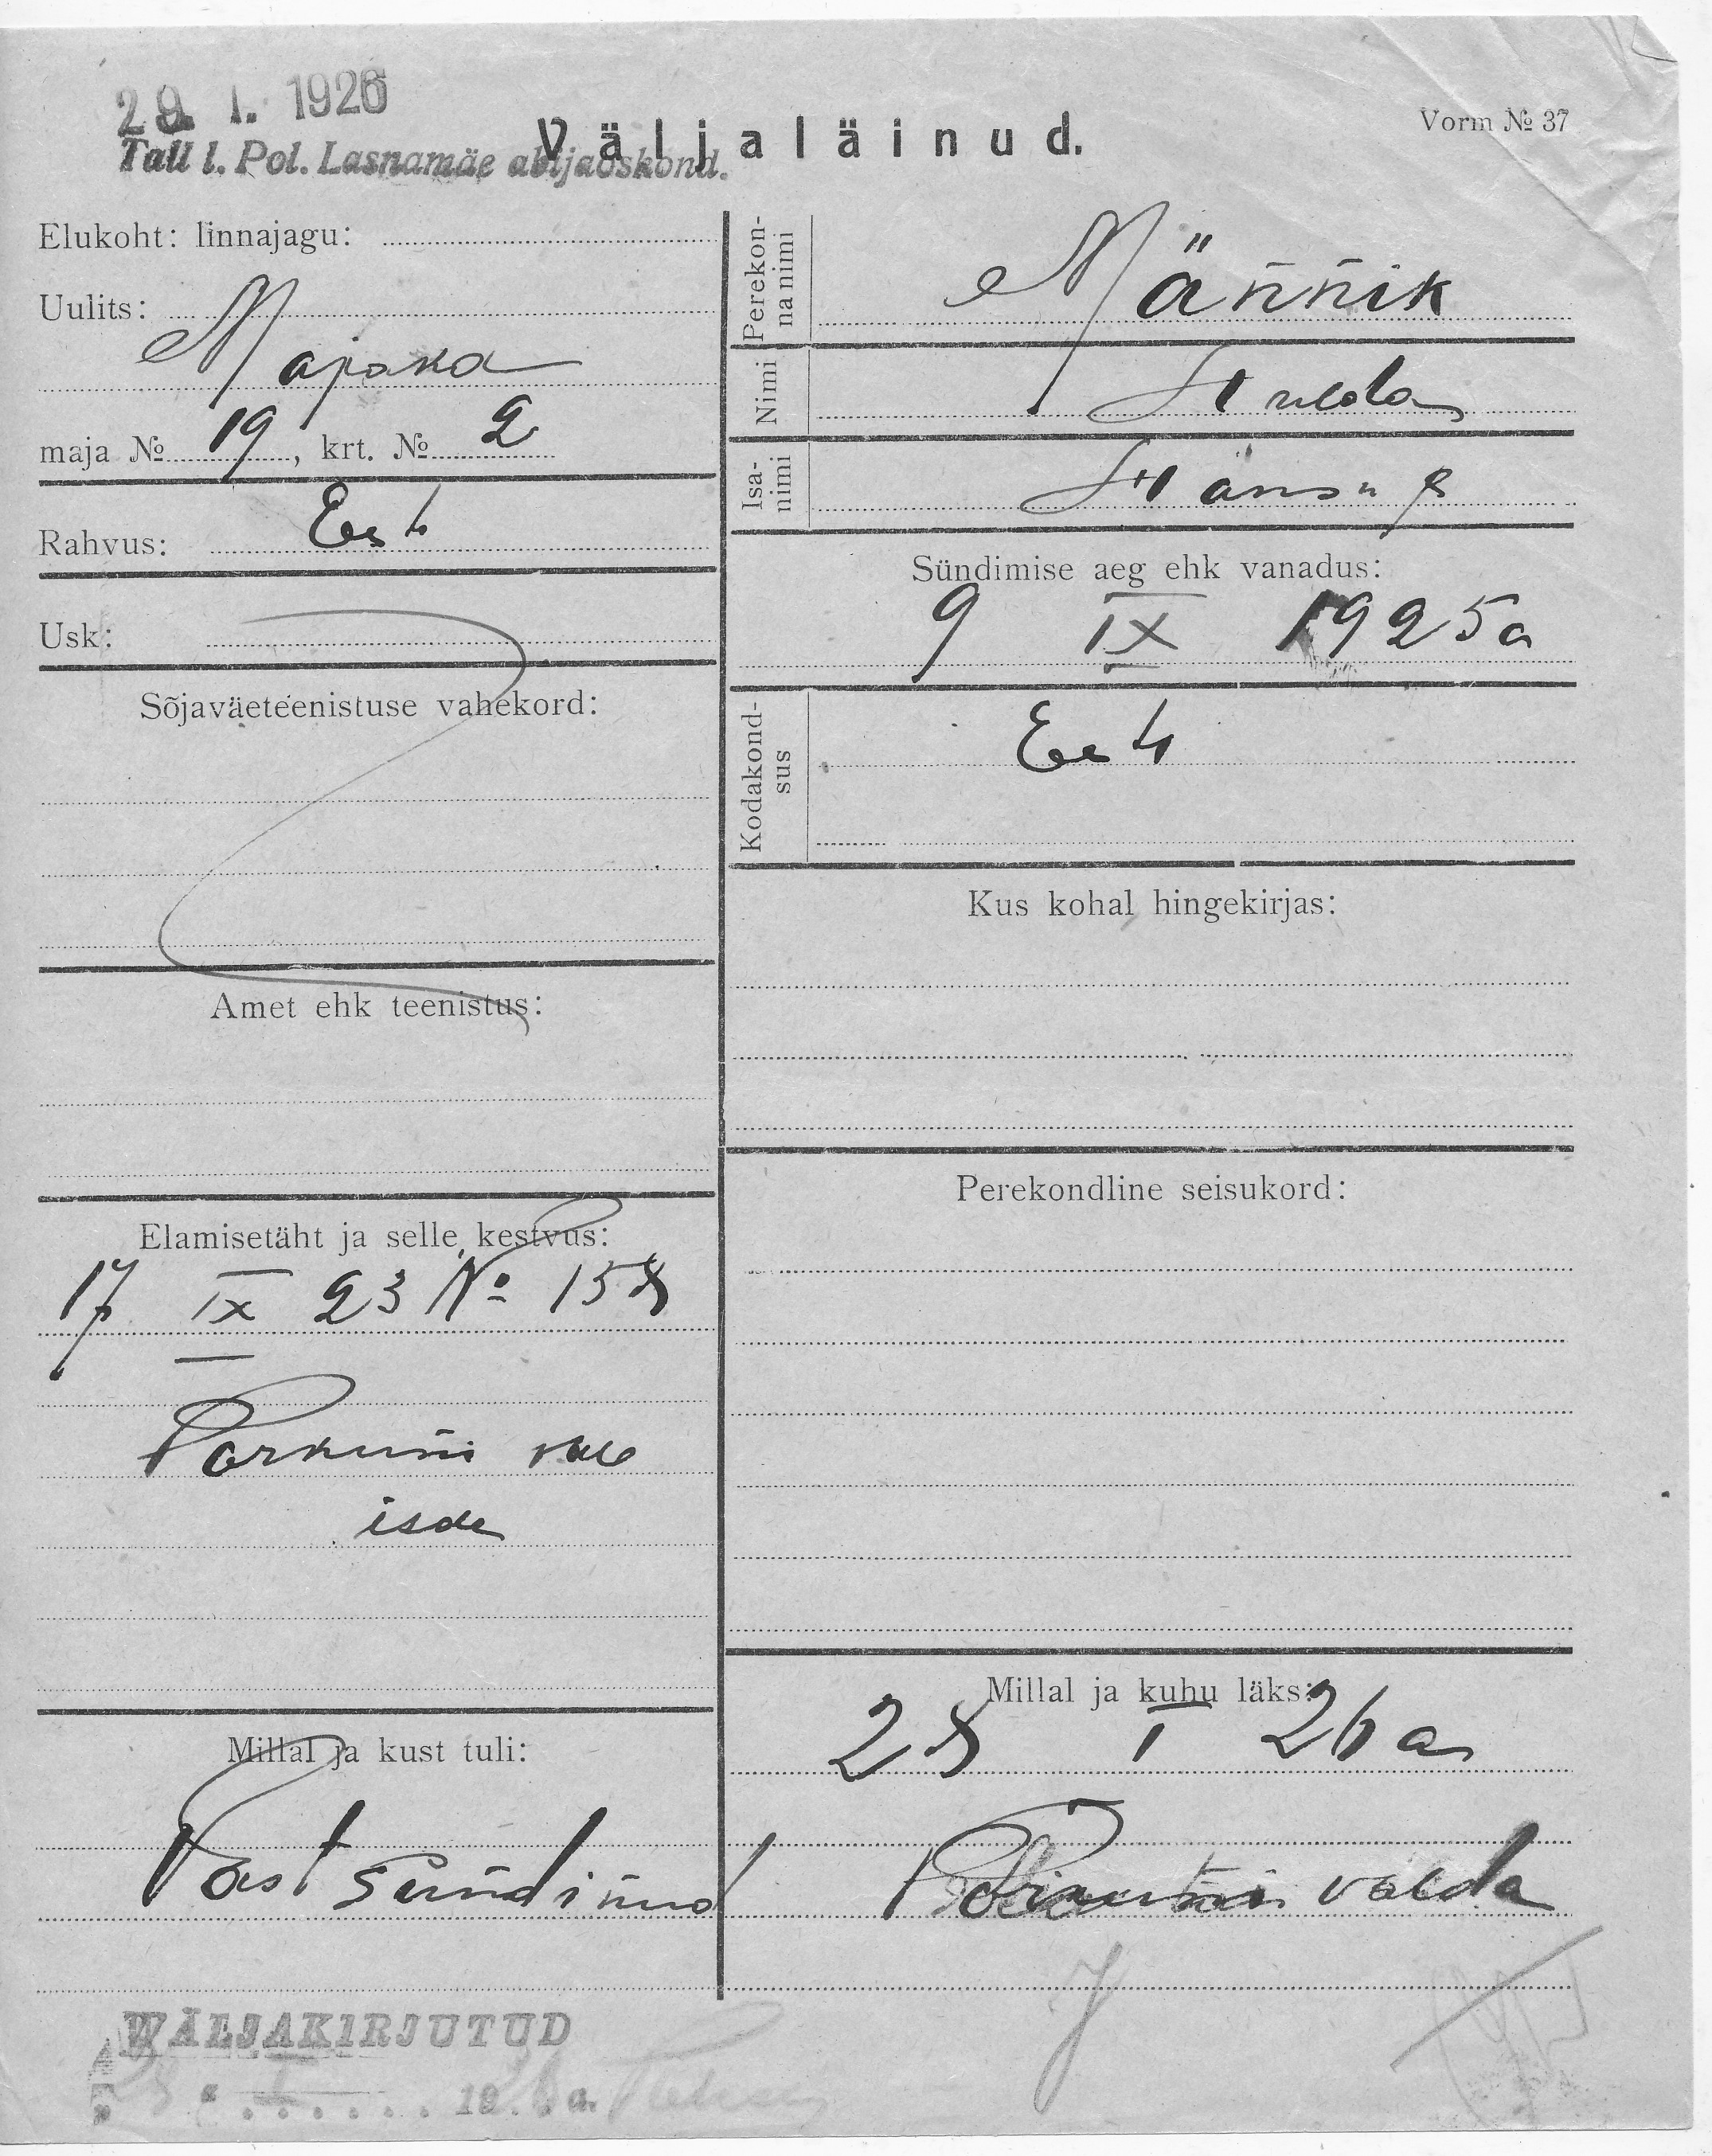 29. I. 1926
Tall l. Pol. Lasnamäe abijaoskond.
Väljaläinud.
Vorm № 37
Elukoht: linnajagu:
Uulits:
Majaka
maja № 19, krt. № 2
Rahvus: Eest
Usk:
Sõjaväeteenistuse vahekord:
Amet ehk teenistus:
Elamisetäht ja selle kestvus:
17 IX 23 № 158
Porkuni
isa
Millal ja kust tuli:
Vast sündinud
Perekon-
na nimi
Männik
Nimi
Hulda
Isa-
nimi
Hans
Sündimise aeg ehk vanadus:
9 IX 1925 a
Kodakond-
sus
Eest
Kus kohal hingekirjas:
Perekondline seisukord:
Millal ja kuhu läks:
28 I 26 a
valda
WÄLJAKIRJUTUD
19 a.